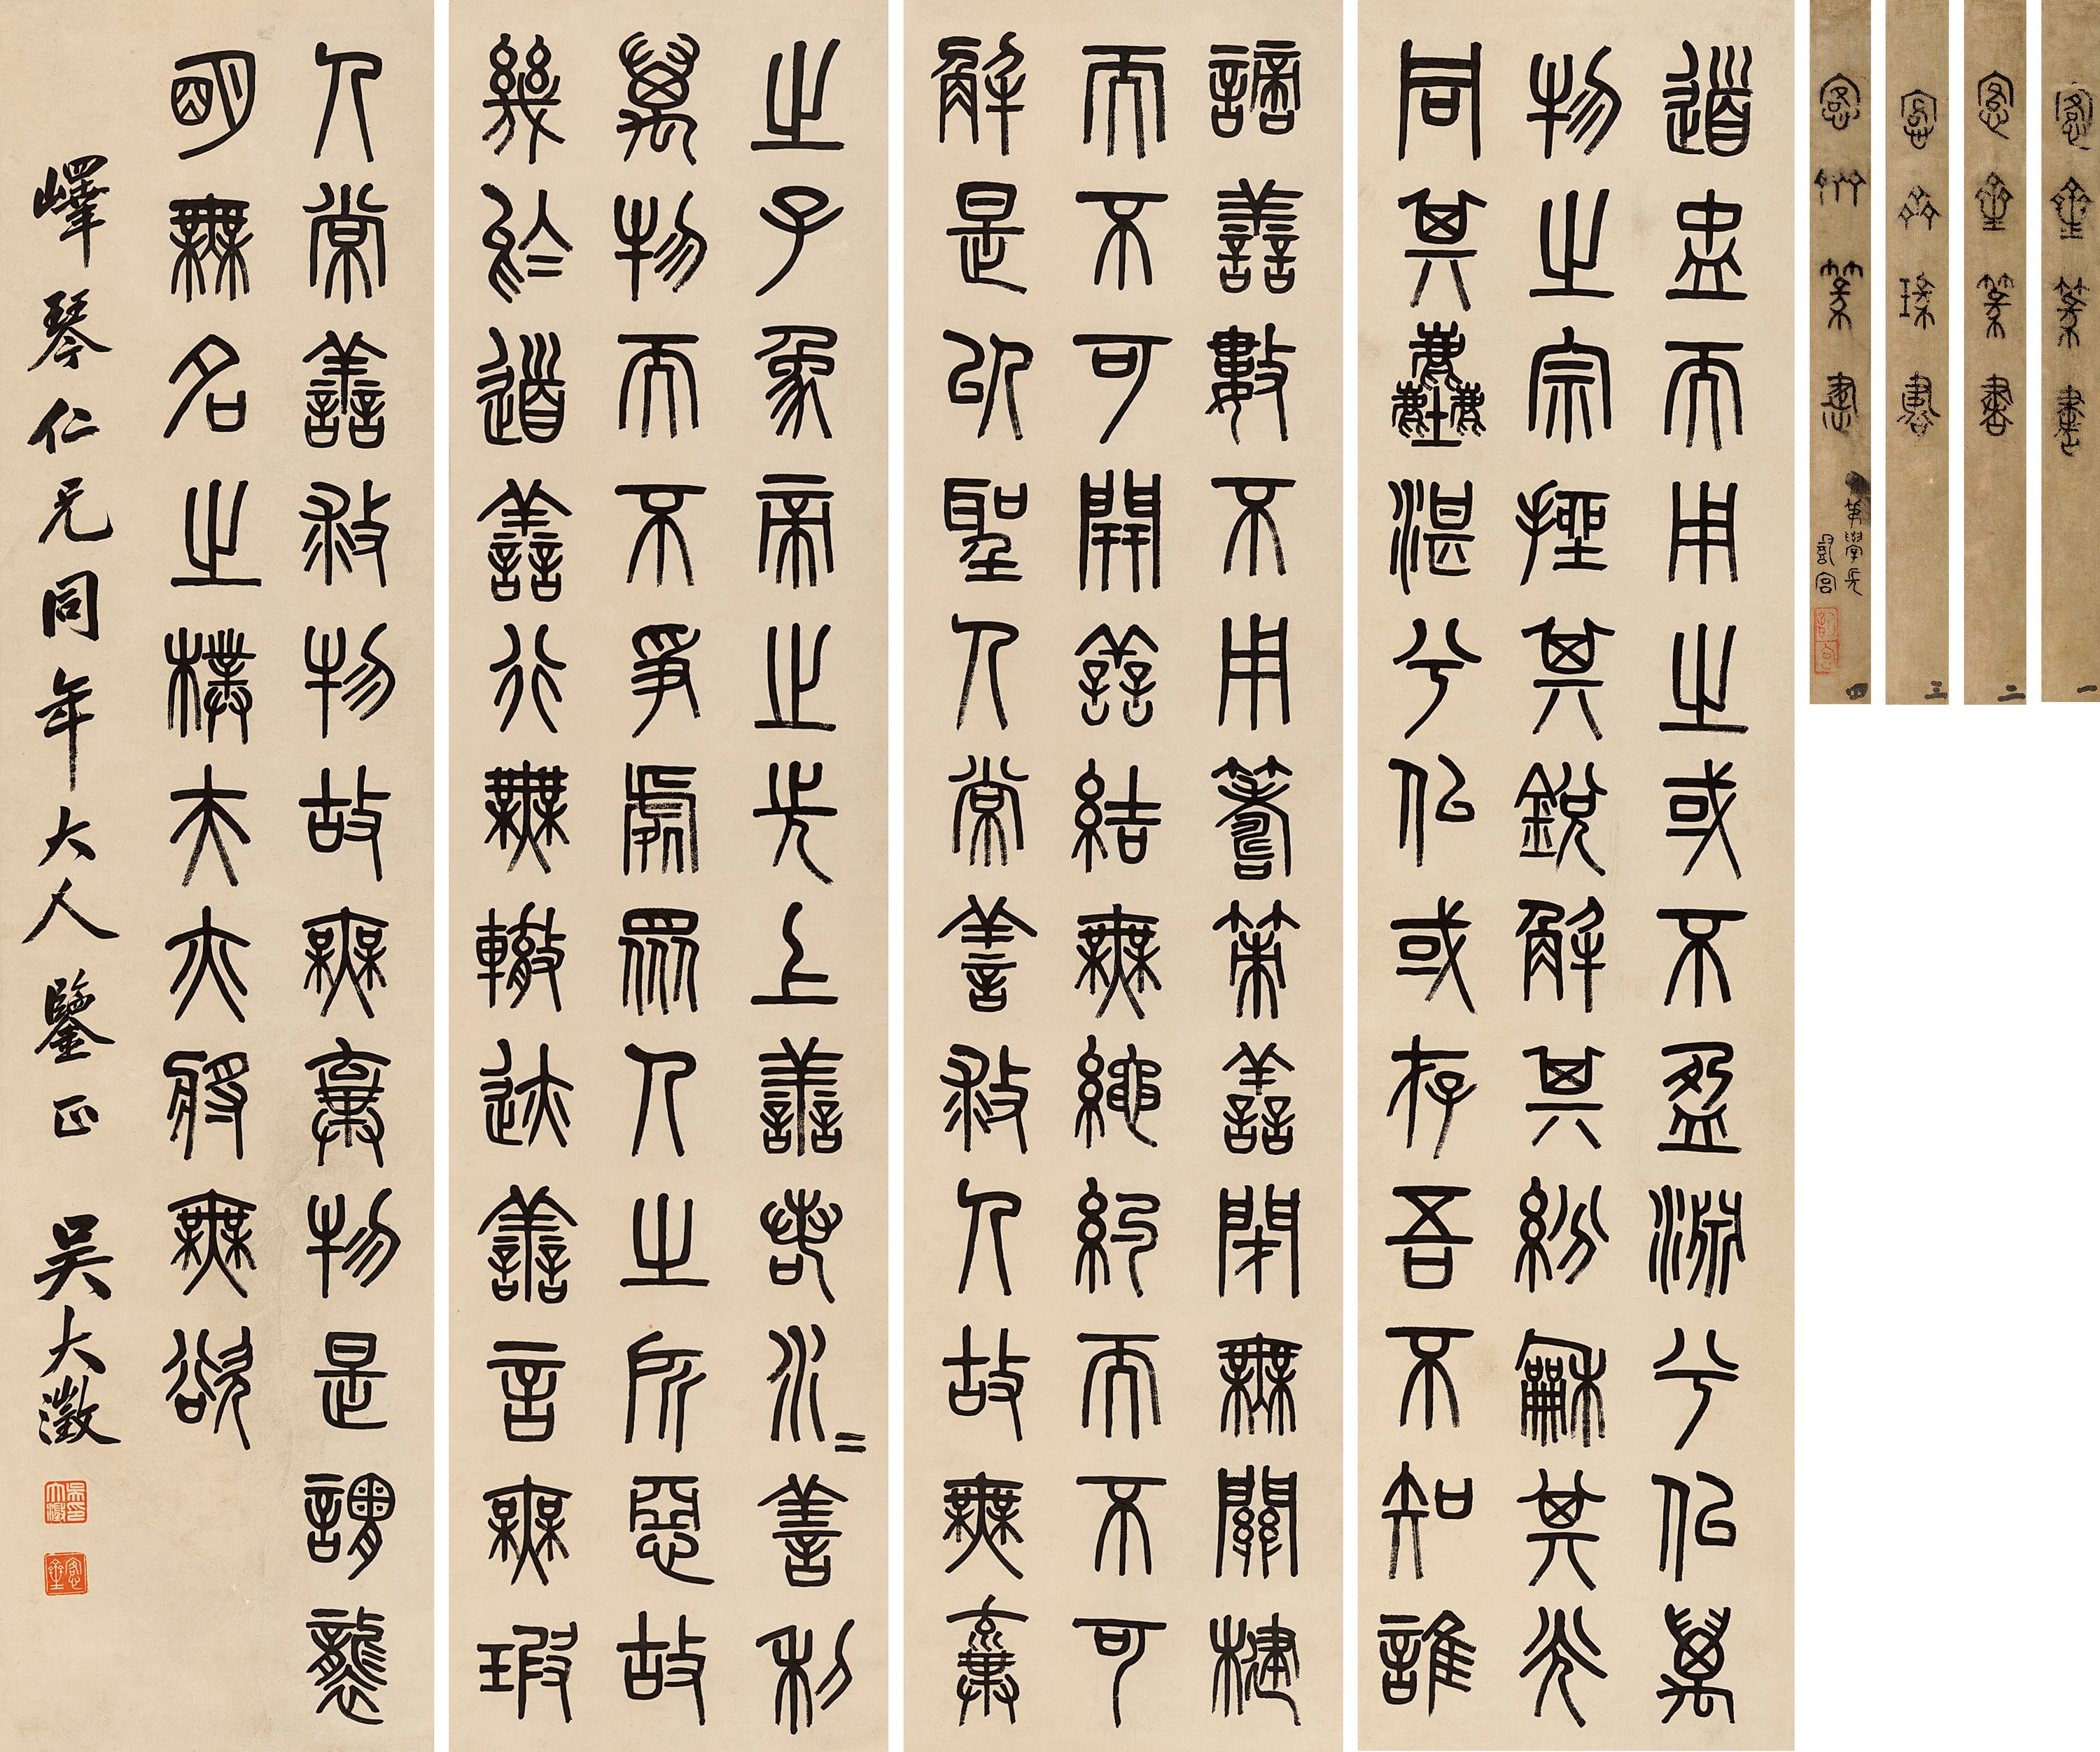 愙齋篆書 一
愙齋篆書 二
愙齋瑑書 三
愙齋篆書 四
道盅而用之或不盈淵兮似萬
物之宗挫其銳解其紛龢其光
同其塵湛兮似或存吾不知誰
謫善數不用籌策善閉無關楗
而不可開善結無繩約而不可
解是以聖人常善救人故無棄
之子象帝之先上善若水二善利
萬物而不爭處眾人之所惡故
幾於道善行無轍迹善言無瑕
人常善救物故無棄物是謂襲
明無名之樸夫亦將無欲
嶧琴仁兄同年大人鑒正 吳大澂
吳大澂印
愙齋